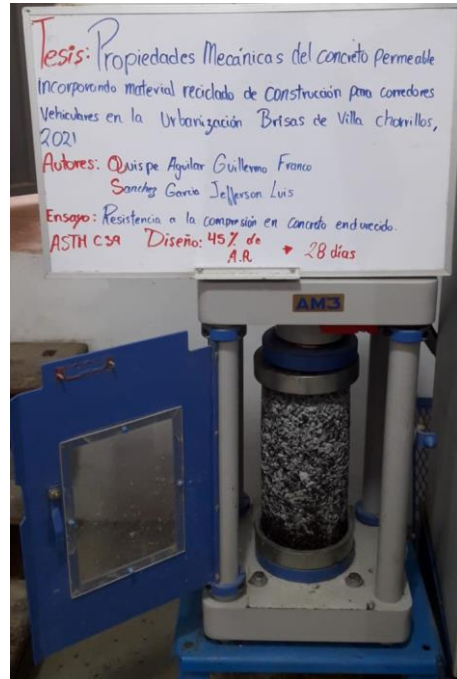 Tesis: Propiedades Mecánicas del concreto Permeable
incorporando material reciclado de construcción para corredores
Vehiculares en la Urbanización Brisas de Villa chorrillos,
2021
Autores: Quispe Aguilar Guillermo Franco
Sanchez Garcia Jefferson Luis
Ensayo: Resistencia a la compresión en concreto endurecido.
ASTM C39 Diseño: 45% de
A.R → 28 días
AM3